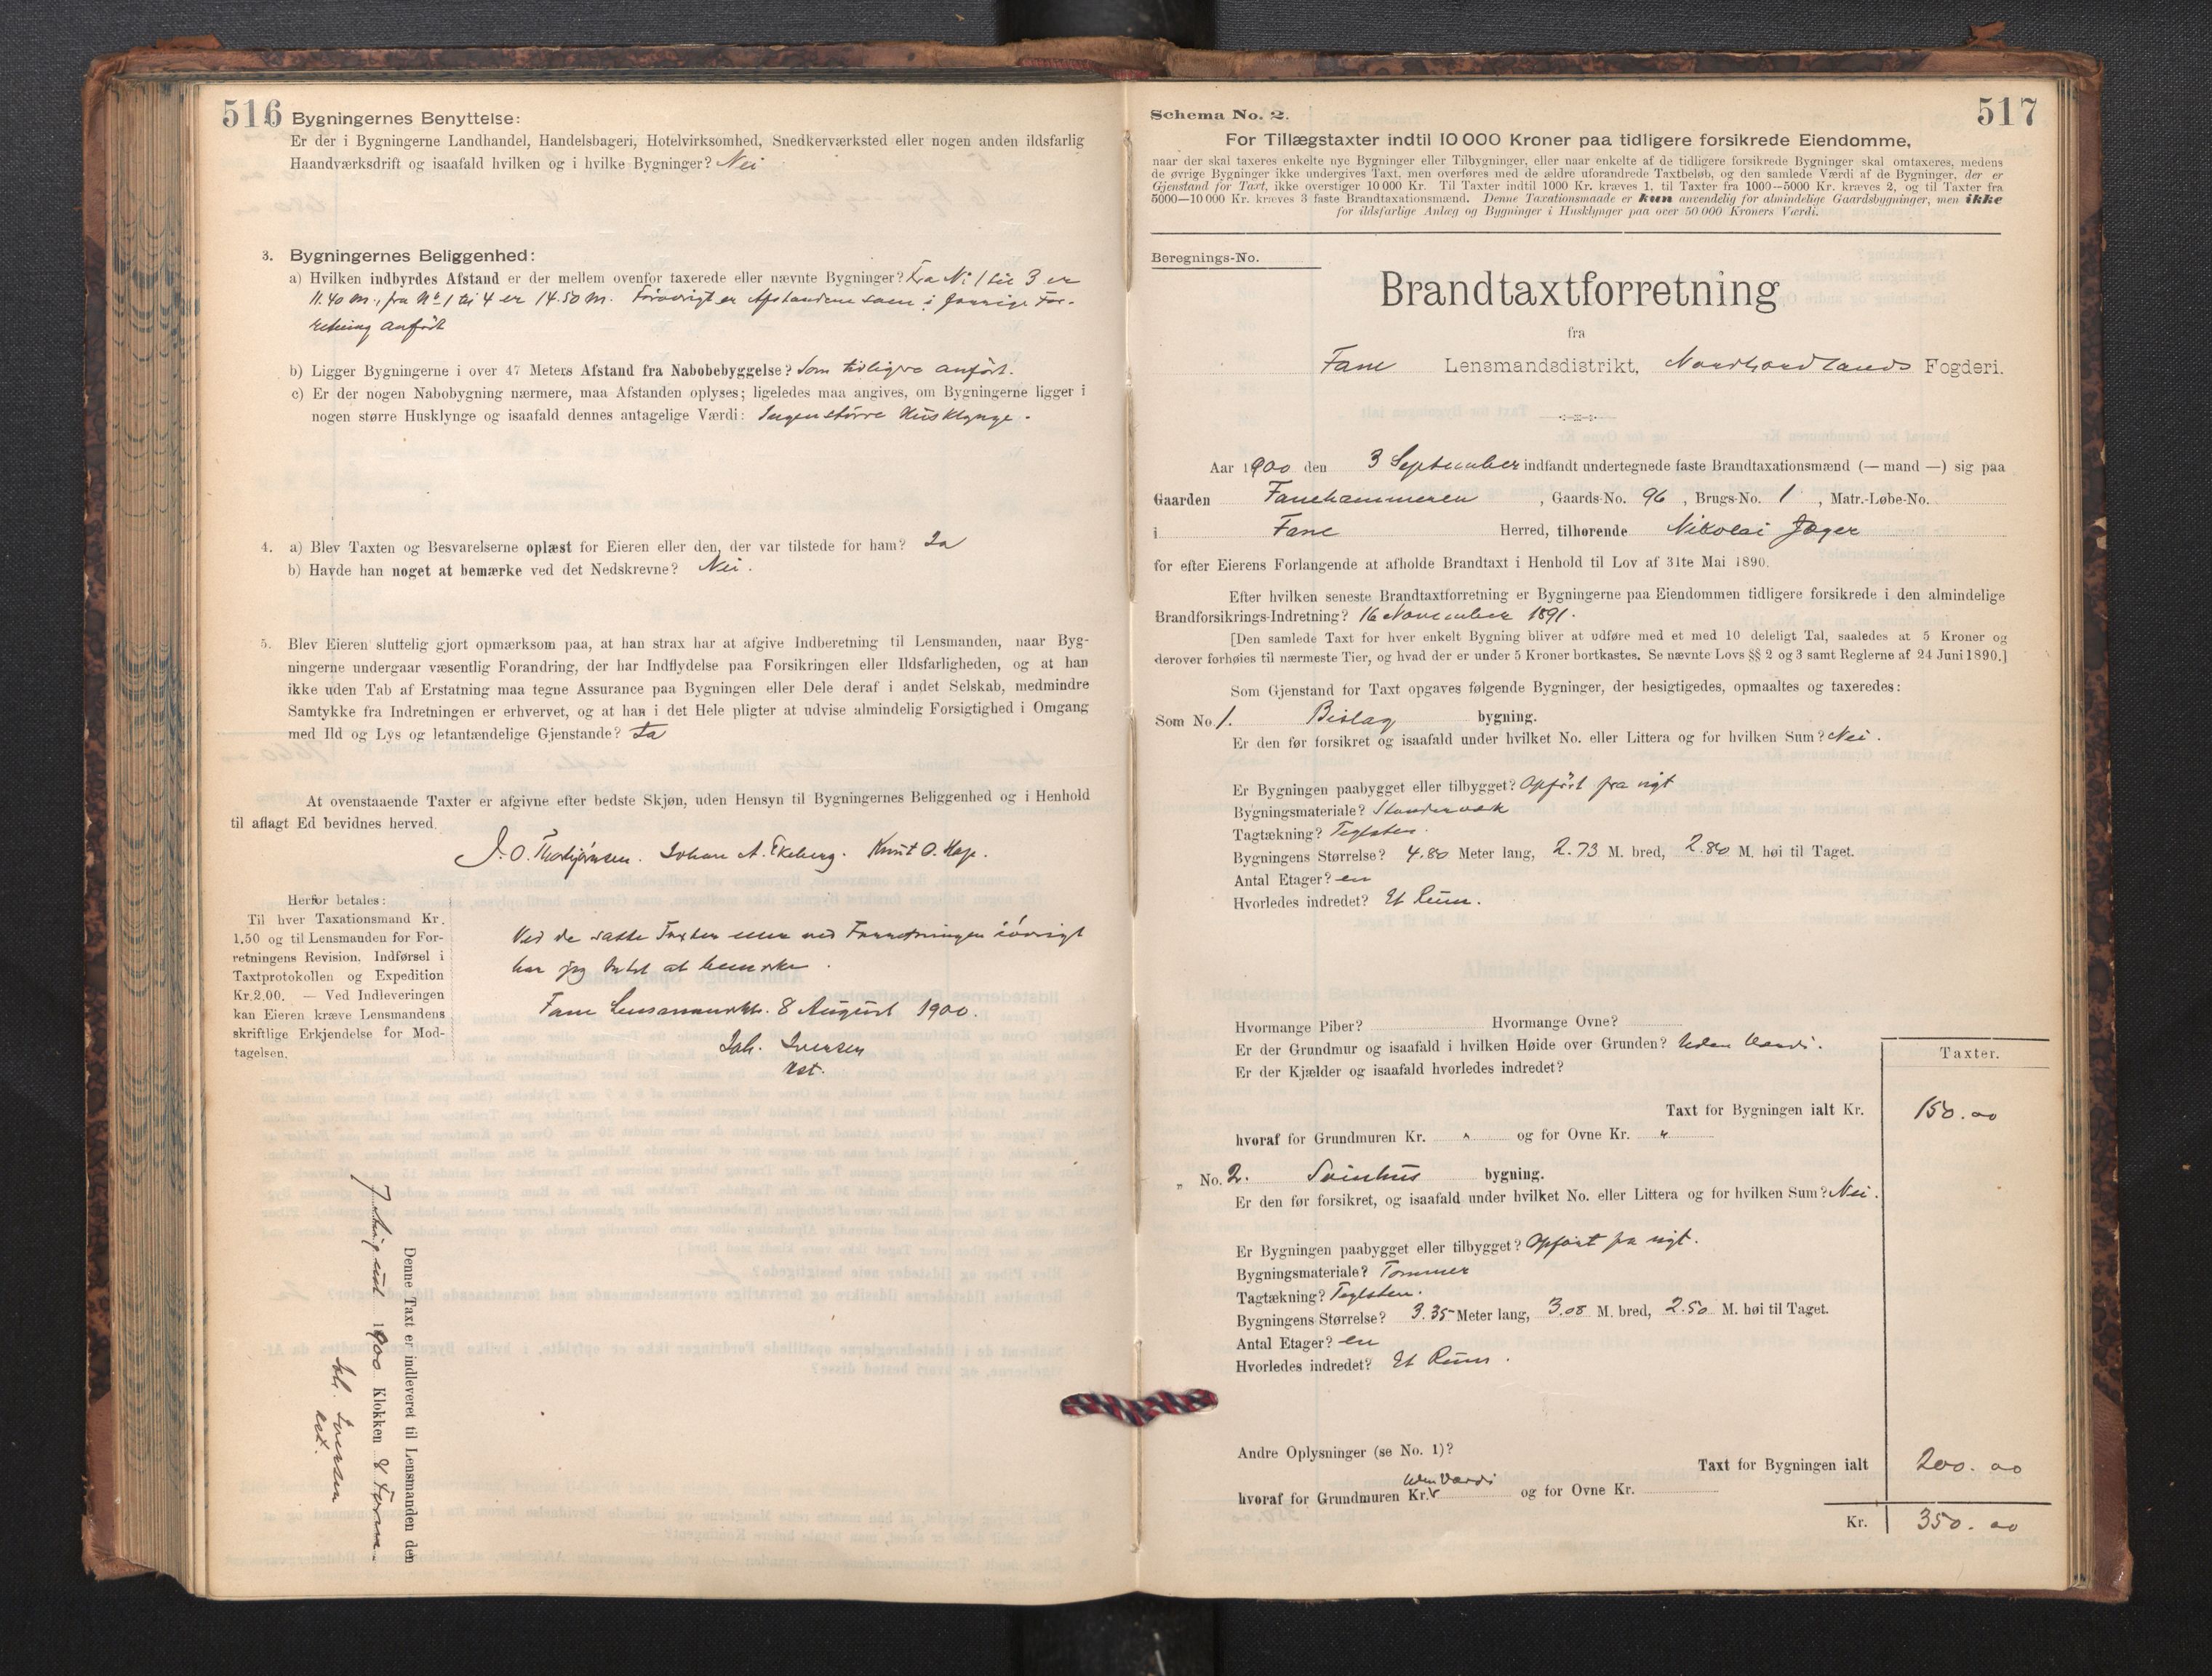 516
Bygningernes Benyttelse:
Er der i Bygningerne Landhandel, Handelsbageri, Hotelvirksomhed, Snedkerværksted eller nogen anden ildsfarlig
Haandværksdrift og isaafald hvilken og i hvilke Bygninger? Nei
3. Bygningernes Beliggenhed:
a) Hvilken indbyrdes Afstand er der mellem ovenfor taxerede eller nævnte Bygninger? Fra No 1 til 3 er
11.40 m., fra No 1 til 4 er 14.50 m. Forøvrigt er Afstandene som i forrige For-
retning anført
b) Ligger Bygningerne i over 47 Meters Afstand fra Nabobebyggelse? Som tidligere anført.
c) Er der nogen Nabobygning nærmere, maa Afstanden oplyses; ligeledes maa angives, om Bygningerne ligger i
nogen større Husklynge og isaafald dennes antagelige Værdi: Ingen større Husklynge.
4. a) Blev Taxten og Besvarelserne oplæst for Eieren eller den, der var tilstede for ham? Ja
b) Havde han noget at bemærke ved det Nedskrevne? Nei.
5. Blev Eieren sluttelig gjort opmærksom paa, at han strax har at afgive Indberetning til Lensmanden, naar Byg-
ningerne undergaar væsentlig Forandring, der har Indflydelse paa Forsikringen eller Ildsfarligheden, og at han
ikke uden Tab af Erstatning maa tegne Assurance paa Bygningen eller Dele deraf i andet Selskab, medmindre
Samtykke fra Indretningen er erhvervet, og at han i det Hele pligter at udvise almindelig Forsigtighed i Omgang
med Ild og Lys og letantændelige Gjenstande? Ja
At ovenstaaende Taxter er afgivne efter bedste Skjøn, uden Hensyn til Bygningernes Beliggenhed og i Henhold
til aflagt Ed bevidnes herved.
J. O. Thorbjørnsen. Johan A. Ekeberg. Knut O. Hop.
Herfor betales:
Til hver Taxationsmand Kr.
1.50 og til Lensmanden for For-
retningens Revision, Indførsel i
Taxtprotokollen og Expedition
Kr. 2.00. — Ved Indleveringen
kan Eieren kræve Lensmandens
skriftlige Erkjendelse for Mod-
tagelsen.
Ved de satte Taxter eller ved Forretningen iøvrigt
har jeg Intet at bemærke.
Fane Lensmandsk. 8 August 1900.
Joh. Iversen
kst.
Denne Taxt er indleveret til Lensmanden den
7 August 1900 Klokken 8 Form.
Joh. Iversen
kst.
517
Schema No. 2.
For Tillægstaxter indtil 10 000 Kroner paa tidligere forsikrede Eiendomme,
naar der skal taxeres enkelte nye Bygninger eller Tilbygninger, eller naar enkelte af de tidligere forsikrede Bygninger skal omtaxeres, medens
de øvrige Bygninger ikke undergives Taxt, men overføres med de ældre uforandrede Taxtbeløb, og den samlede Værdi af de Bygninger, der er
Gjenstand for Taxt, ikke overstiger 10 000 Kr. Til Taxter indtil 1000 Kr. kræves 1, til Taxter fra 1000—5000 Kr. kræves 2, og til Taxter fra
5000—10 000 Kr. kræves 3 faste Brandtaxationsmænd. Denne Taxationsmaade er kun anvendelig for almindelige Gaardsbygninger, men ikke
for ildsfarlige Anlæg og Bygninger i Husklynger paa over 50 000 Kroners Værdi.
Beregnings-No.
Brandtaxtforretning
fra
Fane Lensmandsdistrikt, Nordhordlands Fogderi.
Aar 1900 den 3 September indfandt undertegnede faste Brandtaxationsmænd (— mand —) sig paa
Gaarden Fanehammeren, Gaards-No. 96, Brugs-No. 1, Matr.-Løbe-No.
i Fane Herred, tilhørende Nikolai Jæger
for efter Eierens Forlangende at afholde Brandtaxt i Henhold til Lov af 31te Mai 1890.
Efter hvilken seneste Brandtaxtforretning er Bygningerne paa Eiendommen tidligere forsikrede i den almindelige
Brandforsikrings-Indretning? 16 November 1891.
[Den samlede Taxt for hver enkelt Bygning bliver at udføre med et med 10 deleligt Tal, saaledes at 5 Kroner og
derover forhøies til nærmeste Tier, og hvad der er under 5 Kroner bortkastes. Se nævnte Lovs §§ 2 og 3 samt Reglerne af 24 Juni 1890.]
Som Gjenstand for Taxt opgaves følgende Bygninger, der besigtigedes, opmaaltes og taxeredes:
Som No. 1. Bislag bygning.
Er den før forsikret og isaafald under hvilket No. eller Littera og for hvilken Sum? Nei.
Er Bygningen paabygget eller tilbygget? Opført fra nyt
Bygningsmateriale? Standerværk
Tagtækning? Teglsten.
Bygningens Størrelse? 4.80 Meter lang, 2.73 M. bred, 2.80 M. høi til Taget.
Antal Etager? en
Hvorledes indredet? Et Rum.
Hvormange Piber? Hvormange Ovne?
Er der Grundmur og isaafald i hvilken Høide over Grunden? Uden Værdi.
Er der Kjælder og isaafald hvorledes indredet?
Taxter.
Taxt for Bygningen ialt Kr. 150.00
hvoraf for Grundmuren Kr. " og for Ovne Kr. "
„ No. 2. Svinhus bygning.
Er den før forsikret, og isaafald under hvilket No. eller Littera og for hvilken Sum? Nei.
Er Bygningen paabygget eller tilbygget? Opført fra nyt.
Bygningsmateriale? Tømmer
Tagtækning? Teglsten.
Bygningens Størrelse? 3.35 Meter lang, 3.08 M. bred, 2.50 M. høi til Taget.
Antal Etager? en
Hvorledes indredet? Et Rum.
Andre Oplysninger (se No. 1)?
Taxt for Bygningen ialt 200.00
hvoraf for Grundmuren Kr. Uden Værdi og for Ovne Kr.
Kr. 350.00